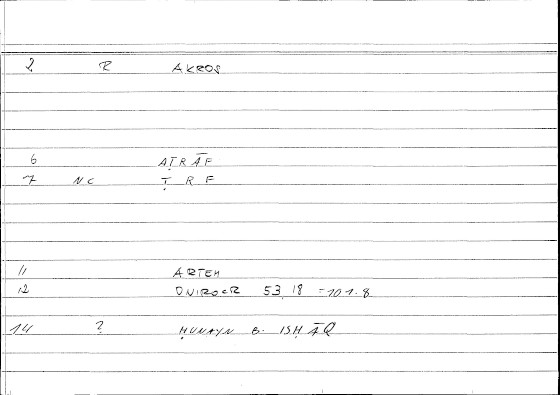 2 R AKROS
6 AṬRĀF
7 NC Ṭ R F
11 ARTEM
12 ONIROCR 53,18 = 101.8
14 ? ḤUNAYN B. ISḤĀQ